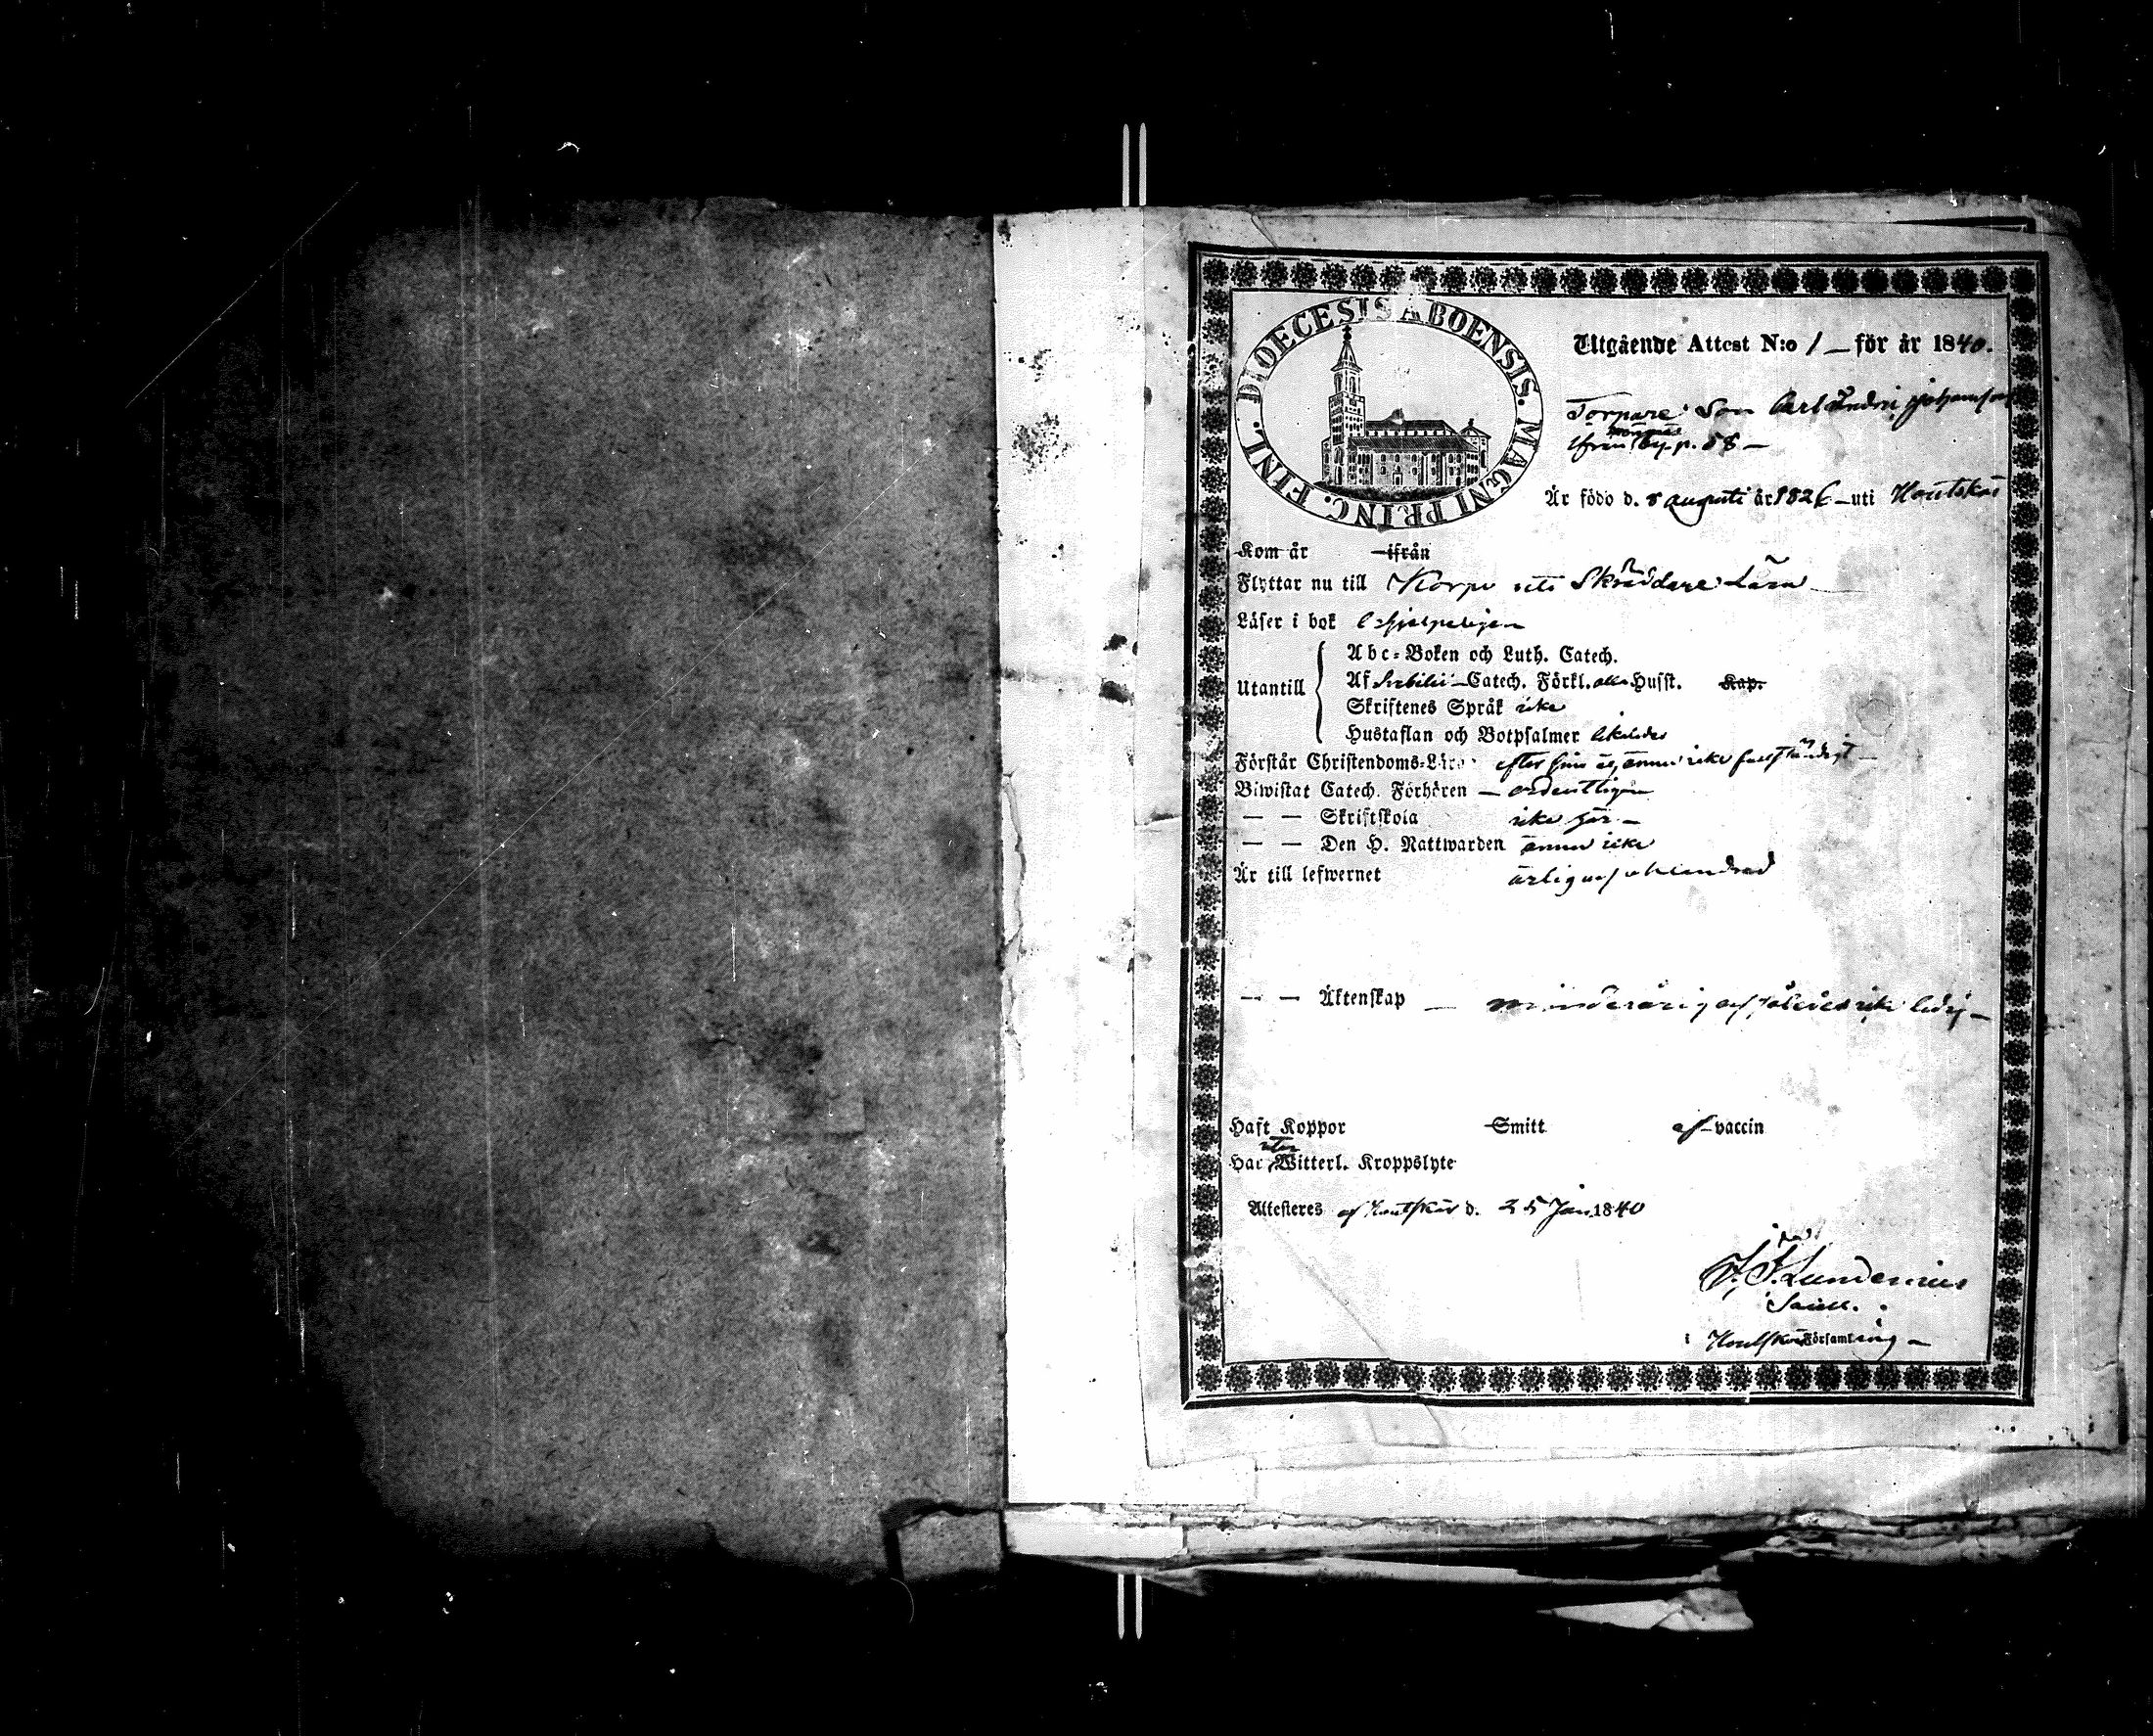 DIOECESIS ABOENSIS. MAGNI PRINC. FINL.
Utgående Attest N:o 1 — för år 1840.
Torpare Son Carl Andri Johansson
ifrån by. p. 58 —
Är född d. 8 augusti år 1826 — uti Houtskär
Kom år ifrån
Flyttar nu till Korpo uti Skräddare Lära
Läser i bok
Utantill
Abc-Boken och Luth. Catech.
Af Svebilii Catech. Förkl. alla Husst. Kap.
Skriftenes Språk icke
Hustaflan och Botpsalmer likaledes
Förstår Christendoms-Lära efter sin ännu icke fullständigt —
Biwistat Catech. Förhören — ordentligen
— — Skriftskola icke
— — Den H. Nattwarden ännu icke
Är till lefwernet ärlig och oklandrad
— — Äktenskap — minderårig och således icke ledig —
Haft Koppor Smitt af vaccin
Har utan Witterl. Kroppslyte
Attesteres af Houtskär d. 25 Jan 1840
Lundenius
i Houtskär Församling —